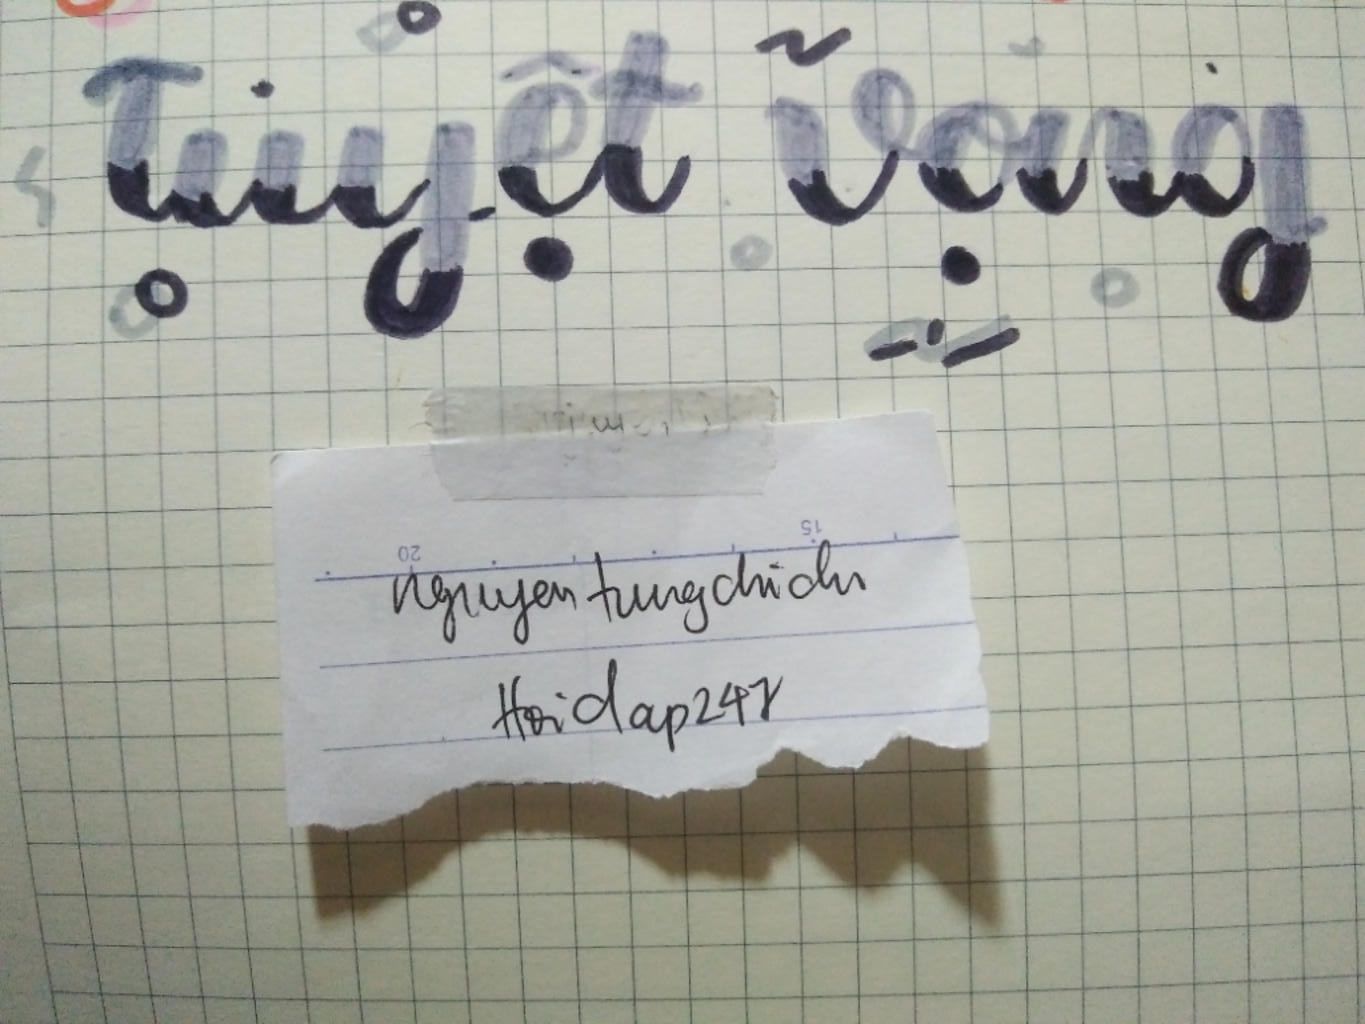 Tuyệt vọng
20 15
nguyentungchichi
Hoidap247